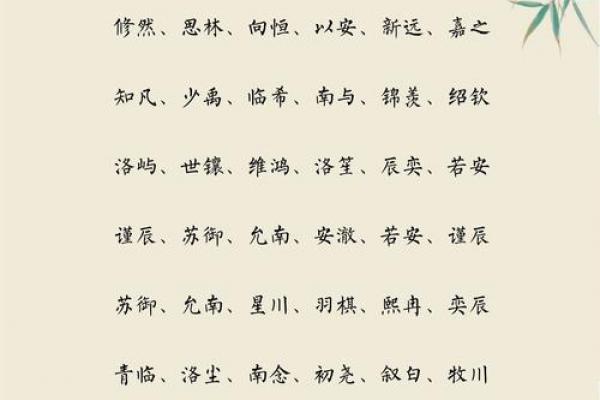 修然、思林、向恒、以安、新远、嘉之
知凡、少禹、临希、南与、锦羡、绍钦
洛屿、世镶、维鸿、洛笙、辰奕、若安
谨辰、苏御、允南、安澈、若安、谨辰
苏御、允南、星川、羽棋、熙冉、奕辰
青临、洛尘、南念、初尧、叙白、牧川